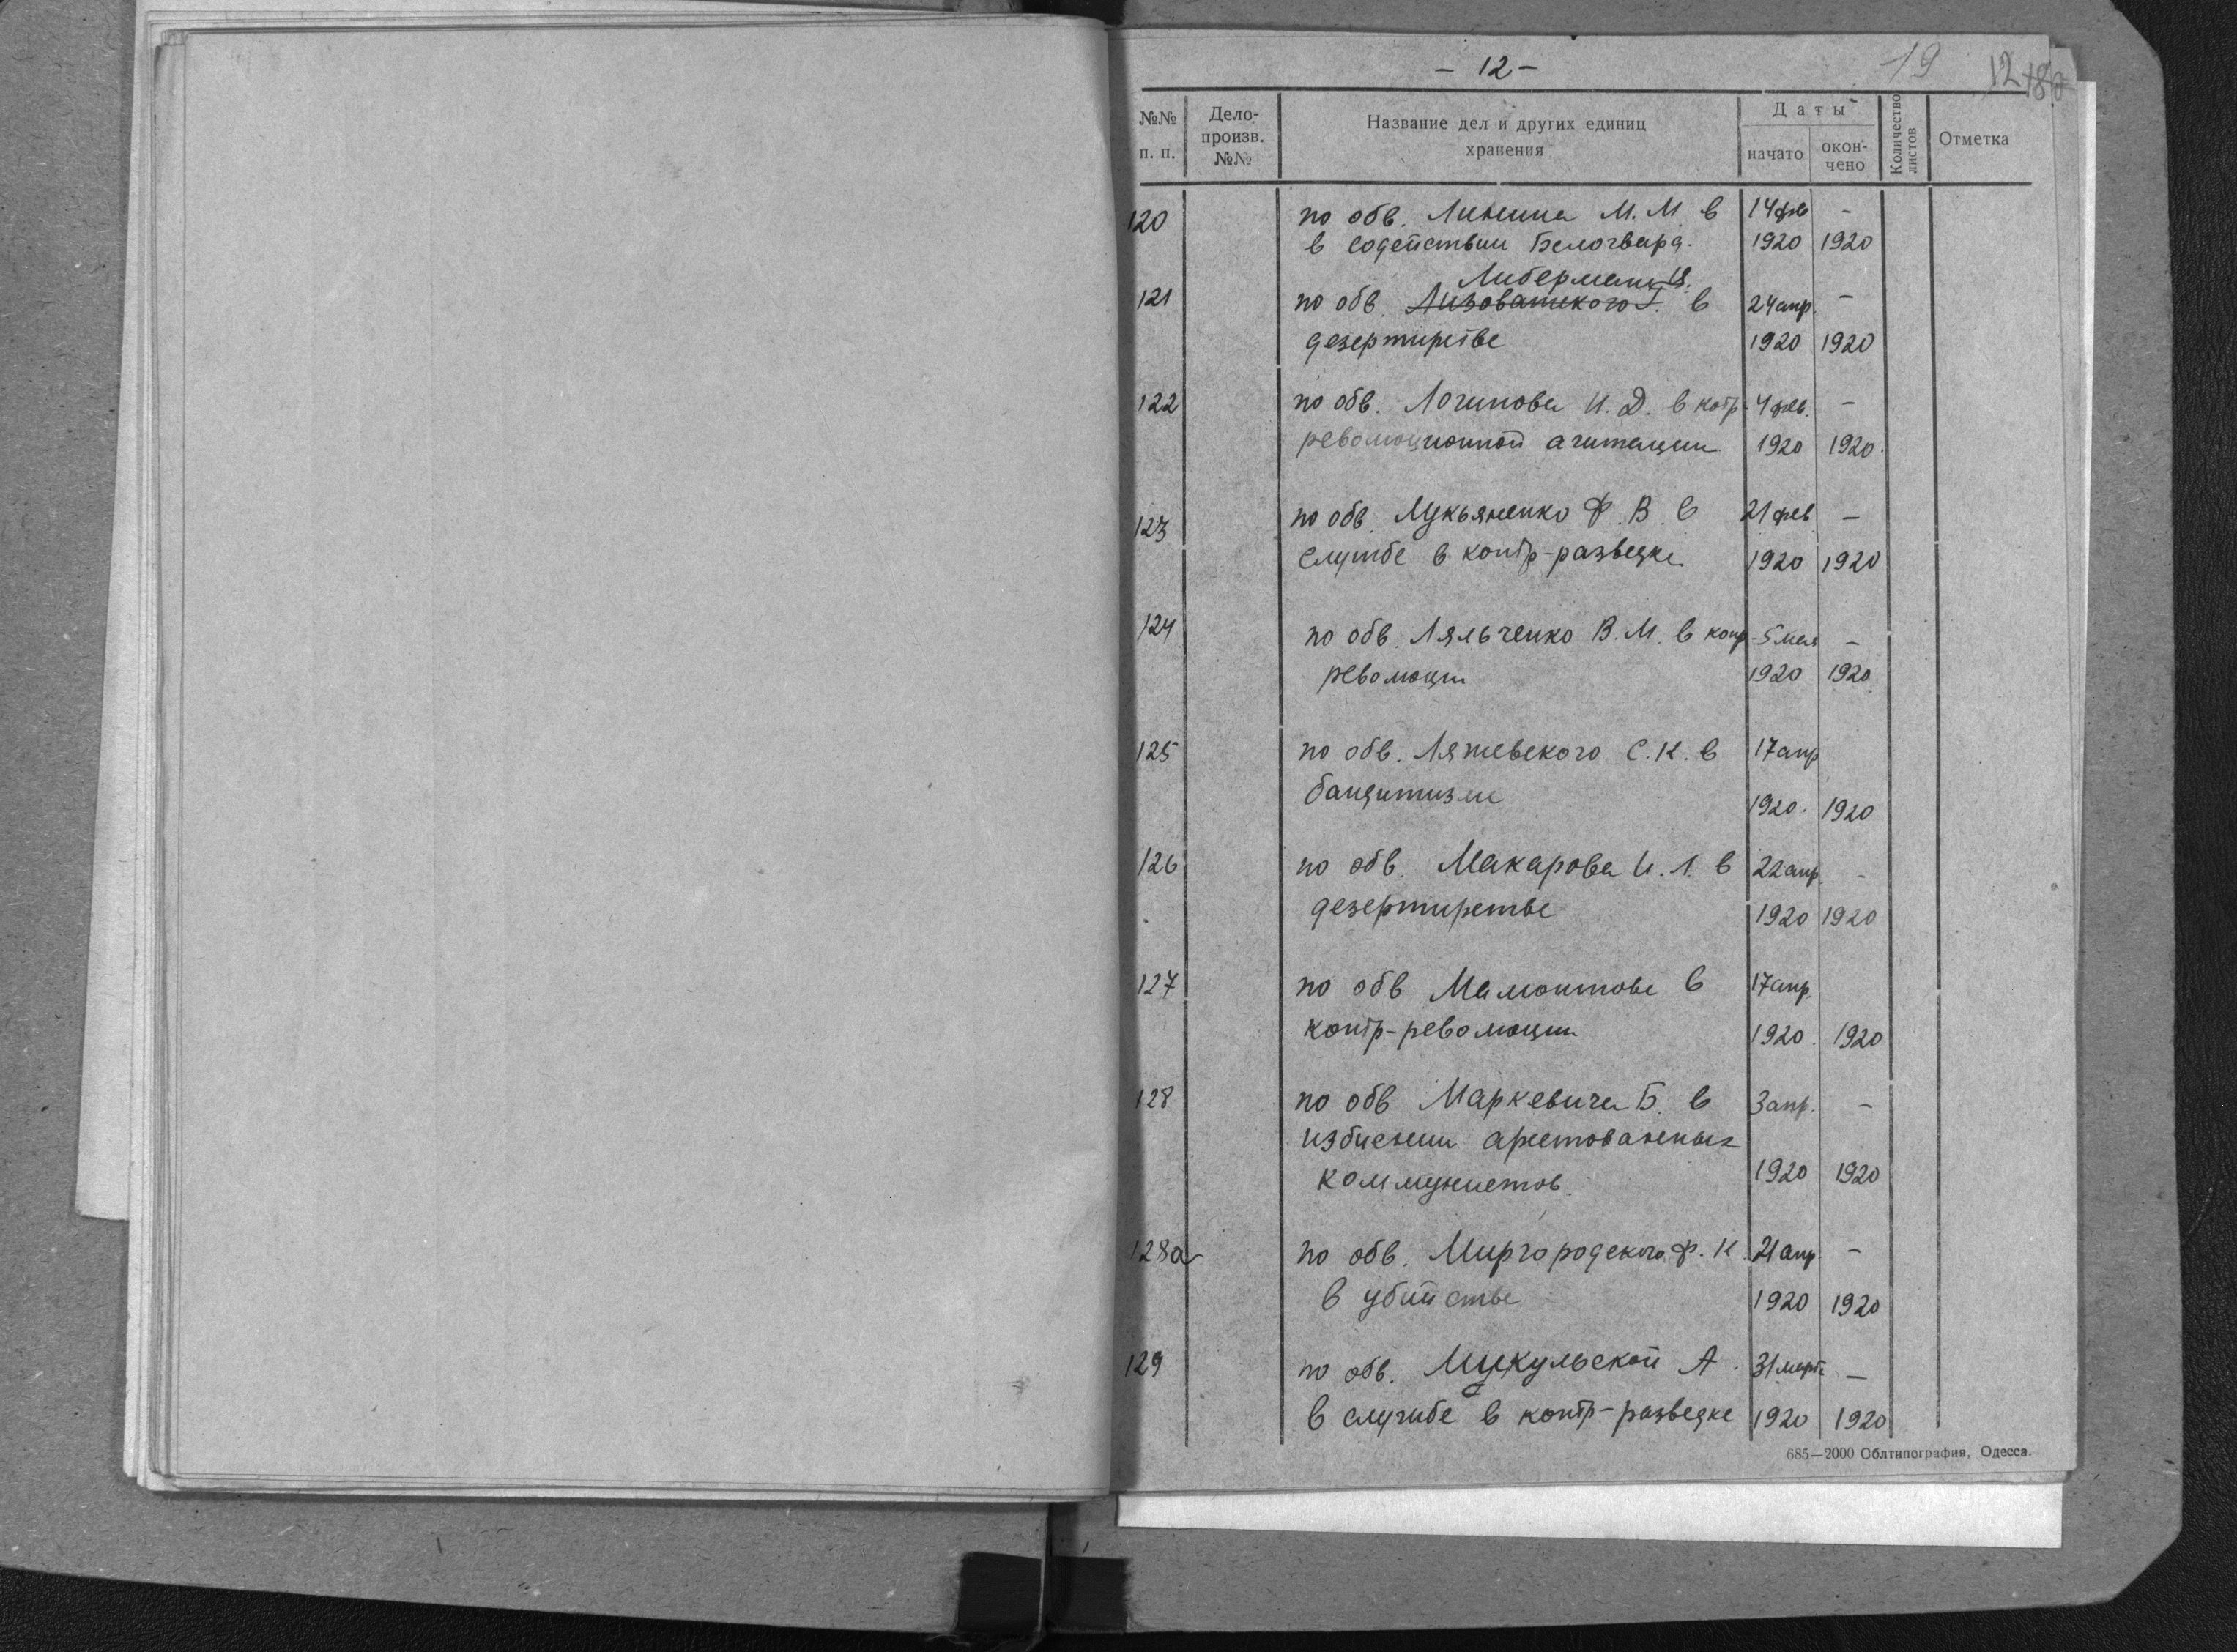 - 12 -
19
12
№№ п. п.
Дело-произв. №№
Название дел и других единиц хранения
Даты
начато
окон-чено
Количество листов
Отметка
120 по обв. Линина М. М. в 14 фев -
в содействии Белогвард. 1920 1920
Либермана
121 по обв. Лизоватского Г. в 24 апр. -
дезертирстве 1920 1920
122 по обв. Логинова И. Д. в котр- 4 фев. -
революционной агитации 1920 1920.
123 по обв. Лукьяненко Ф. В. в 21 фев -
службе в контр-разведке 1920 1920
124 по обв. Ляльченко В. М. в конр- 5 мая -
революции 1920 1920
125 по обв. Ляшевского С. К. в 17 апр
бандитизме 1920. 1920
126 по обв. Макарова И. Л. в 22 апр. -
дезертирстве 1920 1920
127 по обв Мамонтова в 17 апр.
контр-революции 1920. 1920
128 по обв Маркевича Б. в 3 апр. -
избиении арестованных
коммунистов. 1920 1920
128а по обв. Миргородского Ф. К. 21 апр -
в убийстве 1920 1920
129 по обв. Мукульской А. 31 марта -
в службе в контр-разведке 1920 1920
685—2000 Облтипография, Одесса.